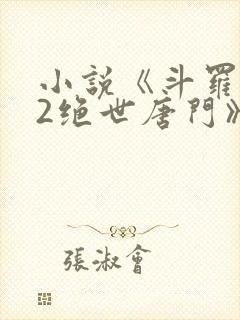 小說《斗羅
2绝世唐門》
張淑會